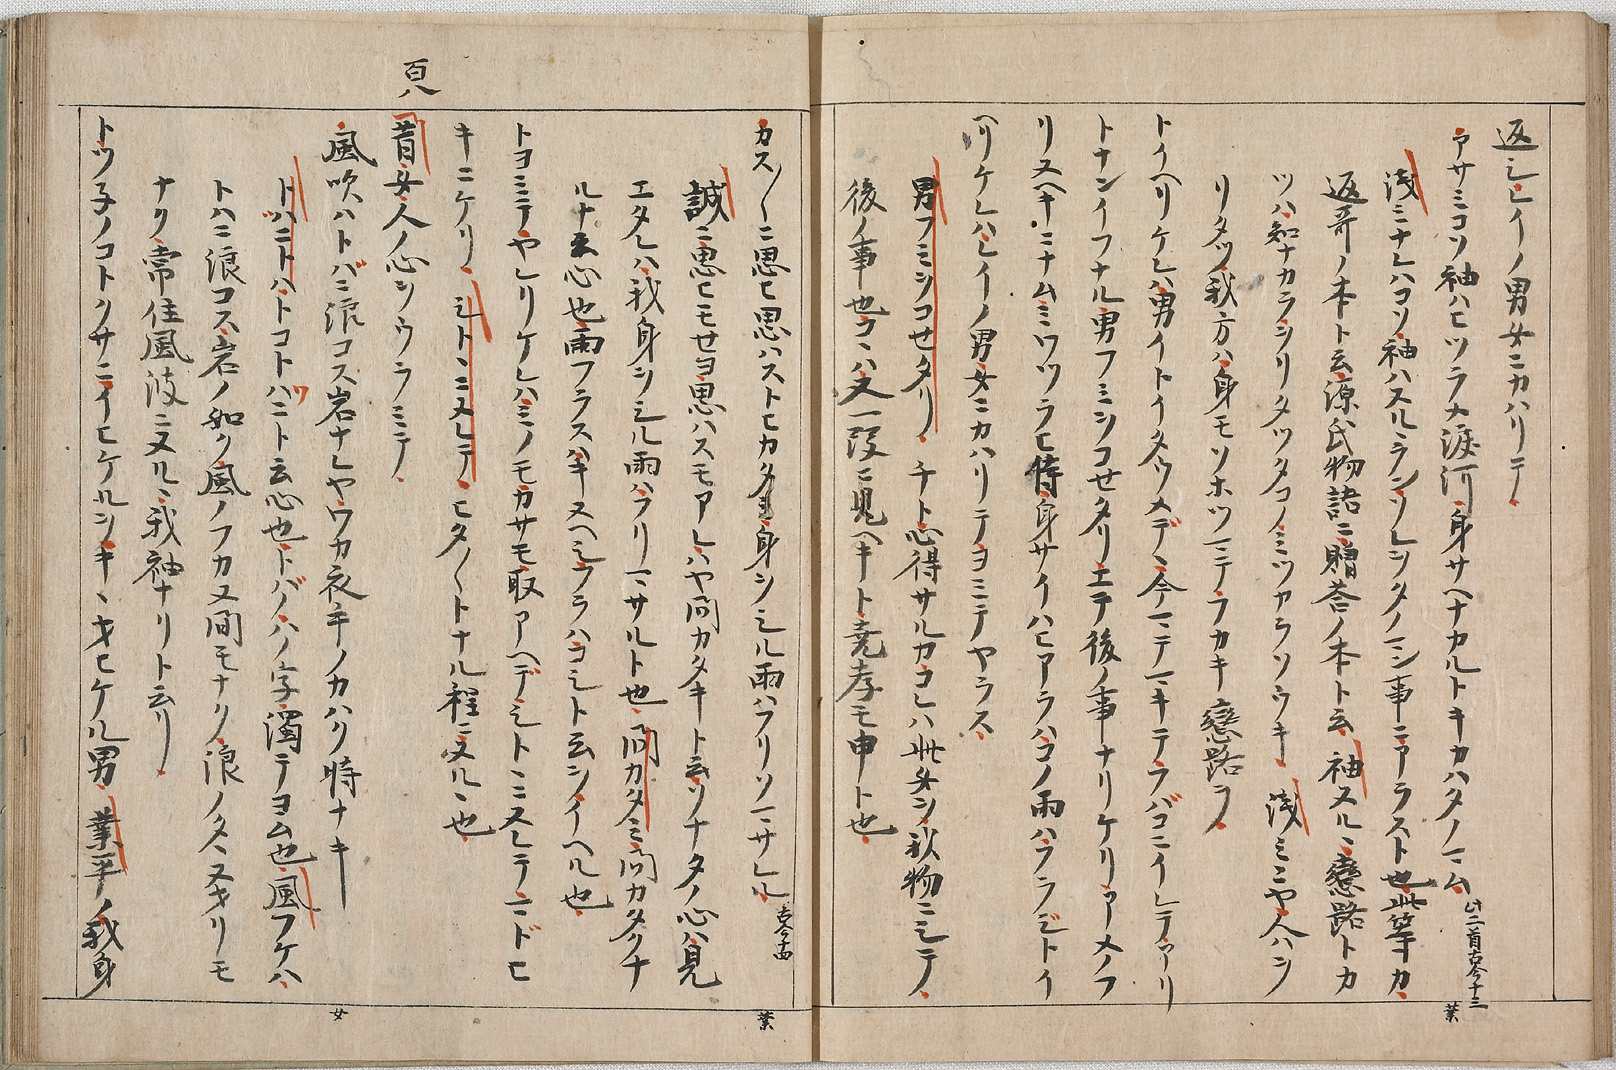 返シレイノ男女ニカハリテ
アサミコソ袖ハヒツラメ涙河身サヘナカルトキカハタノマム 此二首古今十三
業
浅ミナレハコソ袖ハヌルランソレシタノマン事ニアラスト也此等カ
返哥ノ本ト云源氏物語ニ贈荅ノ本ト云袖ヌルヽ戀路トカ
ツハ知ナカラシリタツタコノミツカラソウキ浅ミニヤ人ハシ
リタツ我方ハ身モソホツマテフカキ戀路ヲ
トイヘリケレハ男イトイタウメデヽ今マテマキテフバコニイレテアリ
トナンイフナル男フミシコセタリエテ後ノ事ナリケリアメノフ
リヌヘキニナムミワツラヒ侍身サイハヒアラハコノ雨ハフラジトイ
ヘリケレハレイノ男女ニカハリテヨミテヤラス
男フミシコセタリチト心得サルカコレハ此女ン秋物ミシテ
後ノ事也コヽハ又一段ニ見ヘキト堯孝モ申ト也
カス〱ニ思ヒ思ハストヒカタミ身シシル雨ハフリソマサレル 古今十四
業
誠ニ思ヒモセヨ思ハスモアレハヤ問カタキト云ソナタノ心ハ見
エタレハ我身シシル雨ハフリマサルト也問カタミ問カタクナ
ルナ云心也雨フラスハキヌヘシフラハコシト云シイヘル也
トヨミテヤレリケレハミノモカサモ取アヘデシトヽニヌレテマドヒ
キニケリシトヽニヌレテヒタ〱トナル程ニヌルヽ也
百八
昔女人ノ心シウラミテ
風吹ハトバニ浪コス岩ナレヤワカ衣手ノカハク時ナキ
女
トハニトハトコトハニト云心也トバノハノ字濁テヨム也風フケハ
トハニ浪コス岩ノ如ク風ノフカヌ間モナク浪ノタヽヌキリモ
ナク常住風波ニヌルヽ我袖ナリト云リ
トツ子ノコトクサニイヒケルシキヽオヒケル男業平ノ我身